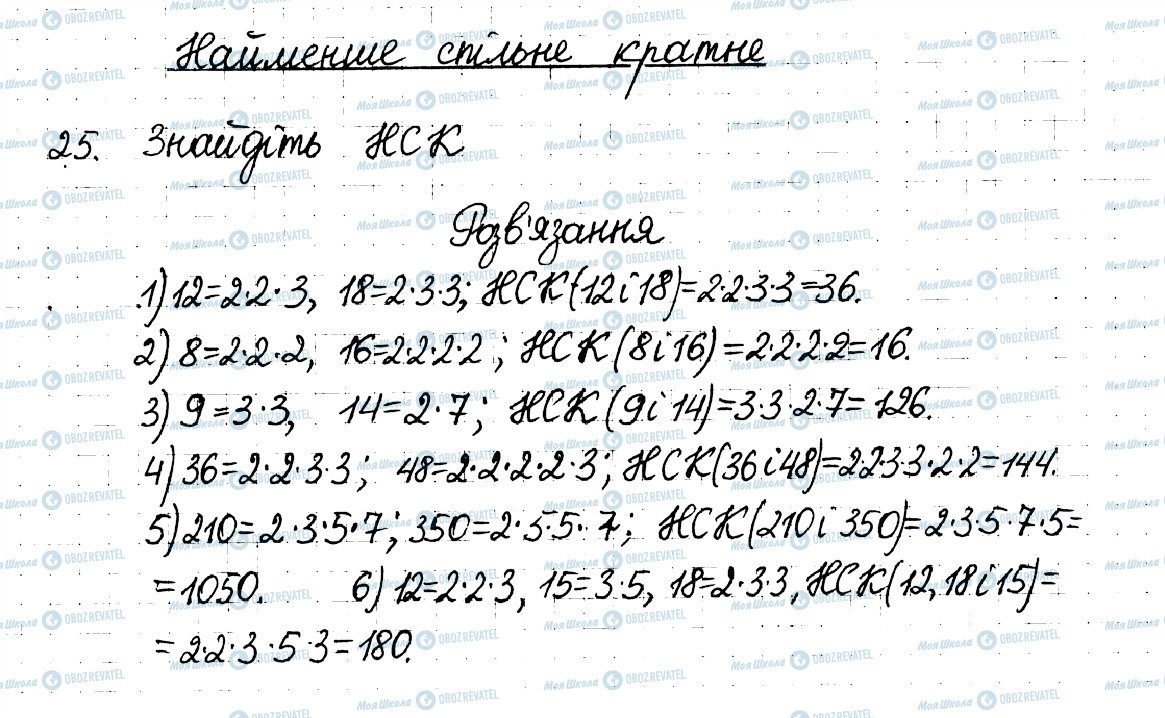 Найменше спільне кратне
25. Знайдіть НСК
Розв'язання
1) 12=2·2·3, 18=2·3·3; НСК(12 і 18)=2·2·3·3=36.
2) 8=2·2·2, 16=2·2·2·2; НСК(8 і 16)=2·2·2·2=16.
3) 9=3·3, 14=2·7; НСК(9 і 14)=3·3·2·7=126.
4) 36=2·2·3·3; 48=2·2·2·2·3; НСК(36 і 48)=2·2·3·3·2·2=144.
5) 210=2·3·5·7; 350=2·5·5·7; НСК(210 і 350)=2·3·5·7·5=
=1050. 6) 12=2·2·3, 15=3·5, 18=2·3·3, НСК(12, 18 і 15)=
=2·2·3·5·3=180.